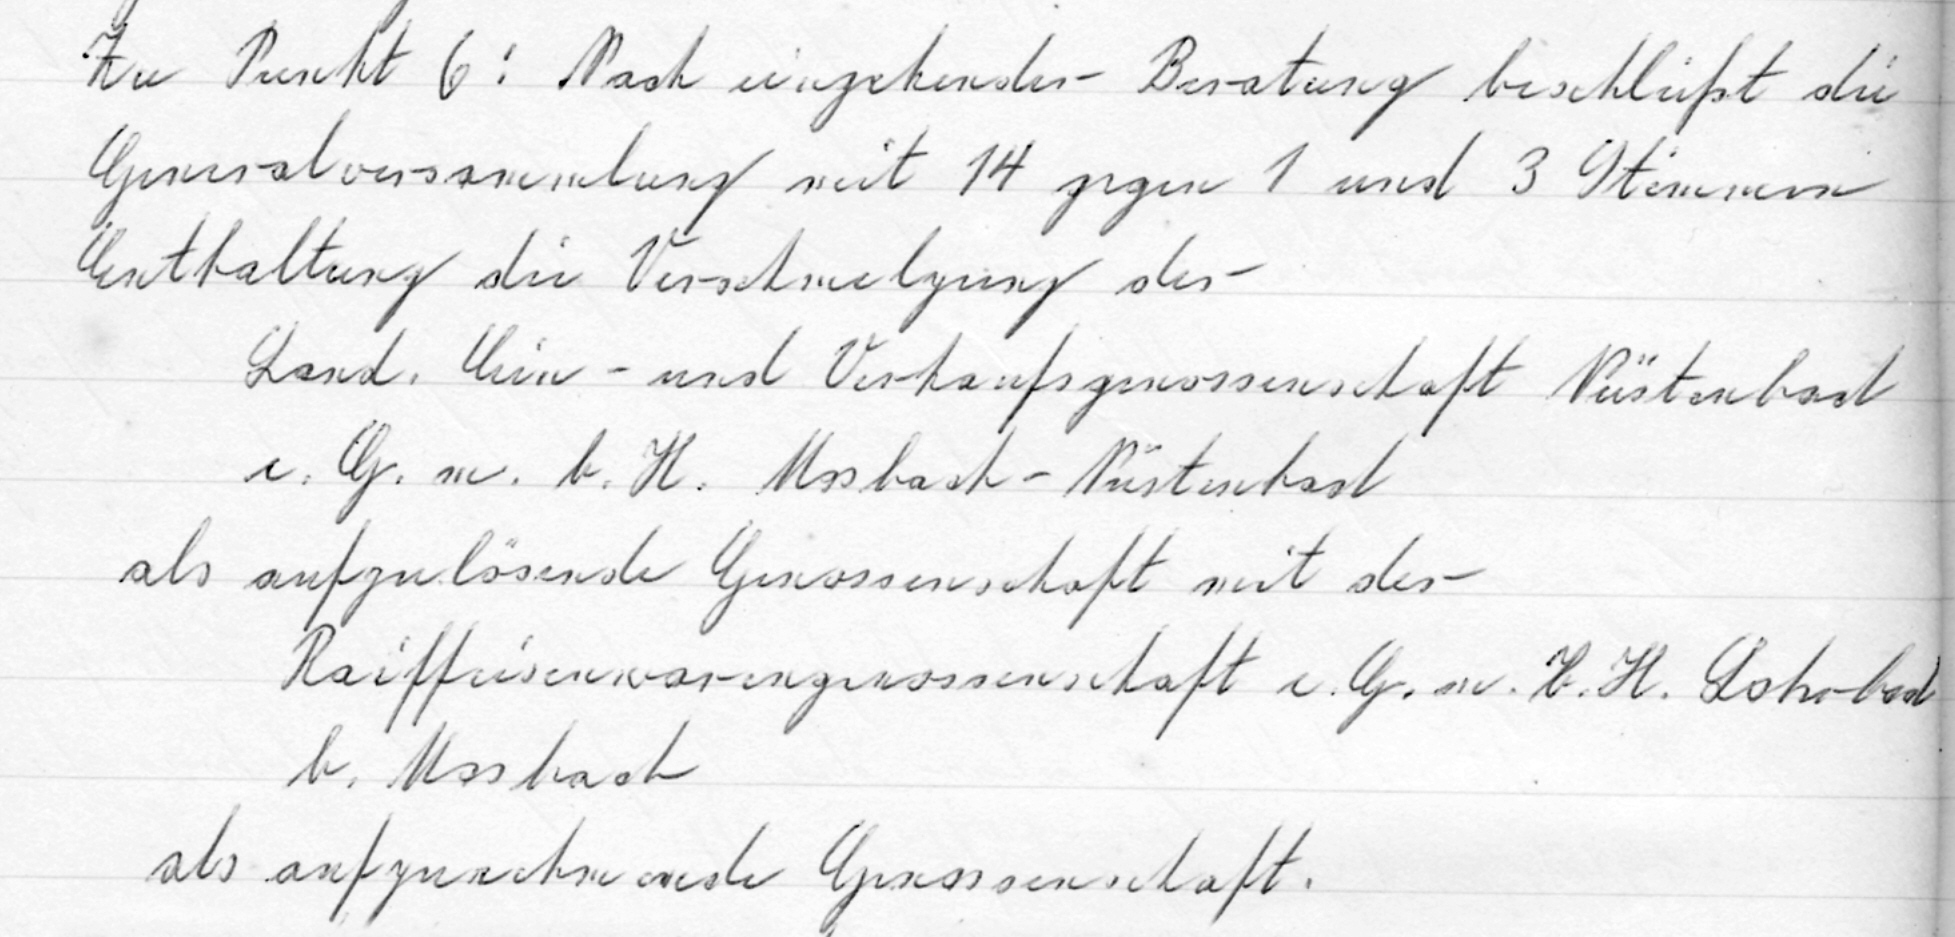 Zu Punkt 6: Nach eingehender Beratung beschließt die
Generalversammlung mit 14 gegen 1 und 3 Stimmen
Enthaltung die Verschmelzung der
Land. Ein- und Verkaufsgenossenschaft Nüstenbach
e. G. m. b. H. Mosbach-Nüstenbach
als aufzulösende Genossenschaft mit der
Raiffeisenwarengenossenschaft e. G. m. b. H. Lohrbach
b. Mosbach
als aufzunehmende Genossenschaft.